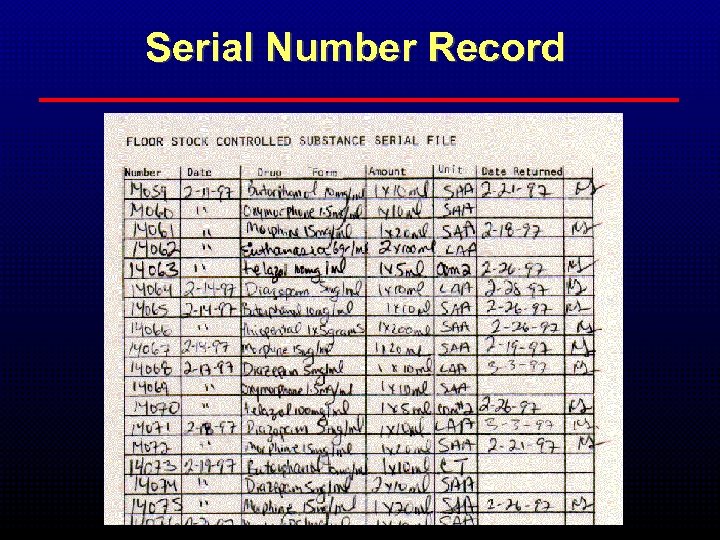 Serial Number Record
FLOOR STOCK CONTROLLED SUBSTANCE SERIAL FILE
Number Date Drug Form Amount Unit Date Returned
14059 2-11-97 Butorphanol 10mg/ml 1x10ml SAA 2-21-97
14060 " Oxymorphone 1.5mg/ml 1x10ml SAA
14061 " Morphine 15mg/ml 1x20ml SAA 2-18-97
14062 " 2x100ml LAA
14063 " telazol 100mg/ml 1x5ml 2-26-97
14064 2-14-97 Diazepam 5mg/ml 1x10ml LAA 2-28-97
14065 2-14-97 Butorphanol 10mg/ml 1x10ml SAA 2-26-97
14066 " thiopental 1x5grams 1x200ml SAA 2-26-97
14067 Morphine 15mg/ml 1x20ml SAA 2-19-97
14068 2-17-97 Diazepam 5mg/ml 1x10ml LAA 3-3-97
14069 " Oxymorphone 1.5mg/ml 1x10ml SAA
14070 " telazol 100mg/ml 1x5ml 2-26-97
14071 2-18-97 Diazepam 5mg/ml 1x10ml LAA 3-3-97
14072 " Morphine 15mg/ml 1x20ml SAA 2-21-97
14073 2-19-97 Butorphanol 1x10ml CT
14074 " Diazepam 5mg/ml 2x10ml SAA
14075 " Morphine 15mg/ml 1x20ml SAA 2-26-97